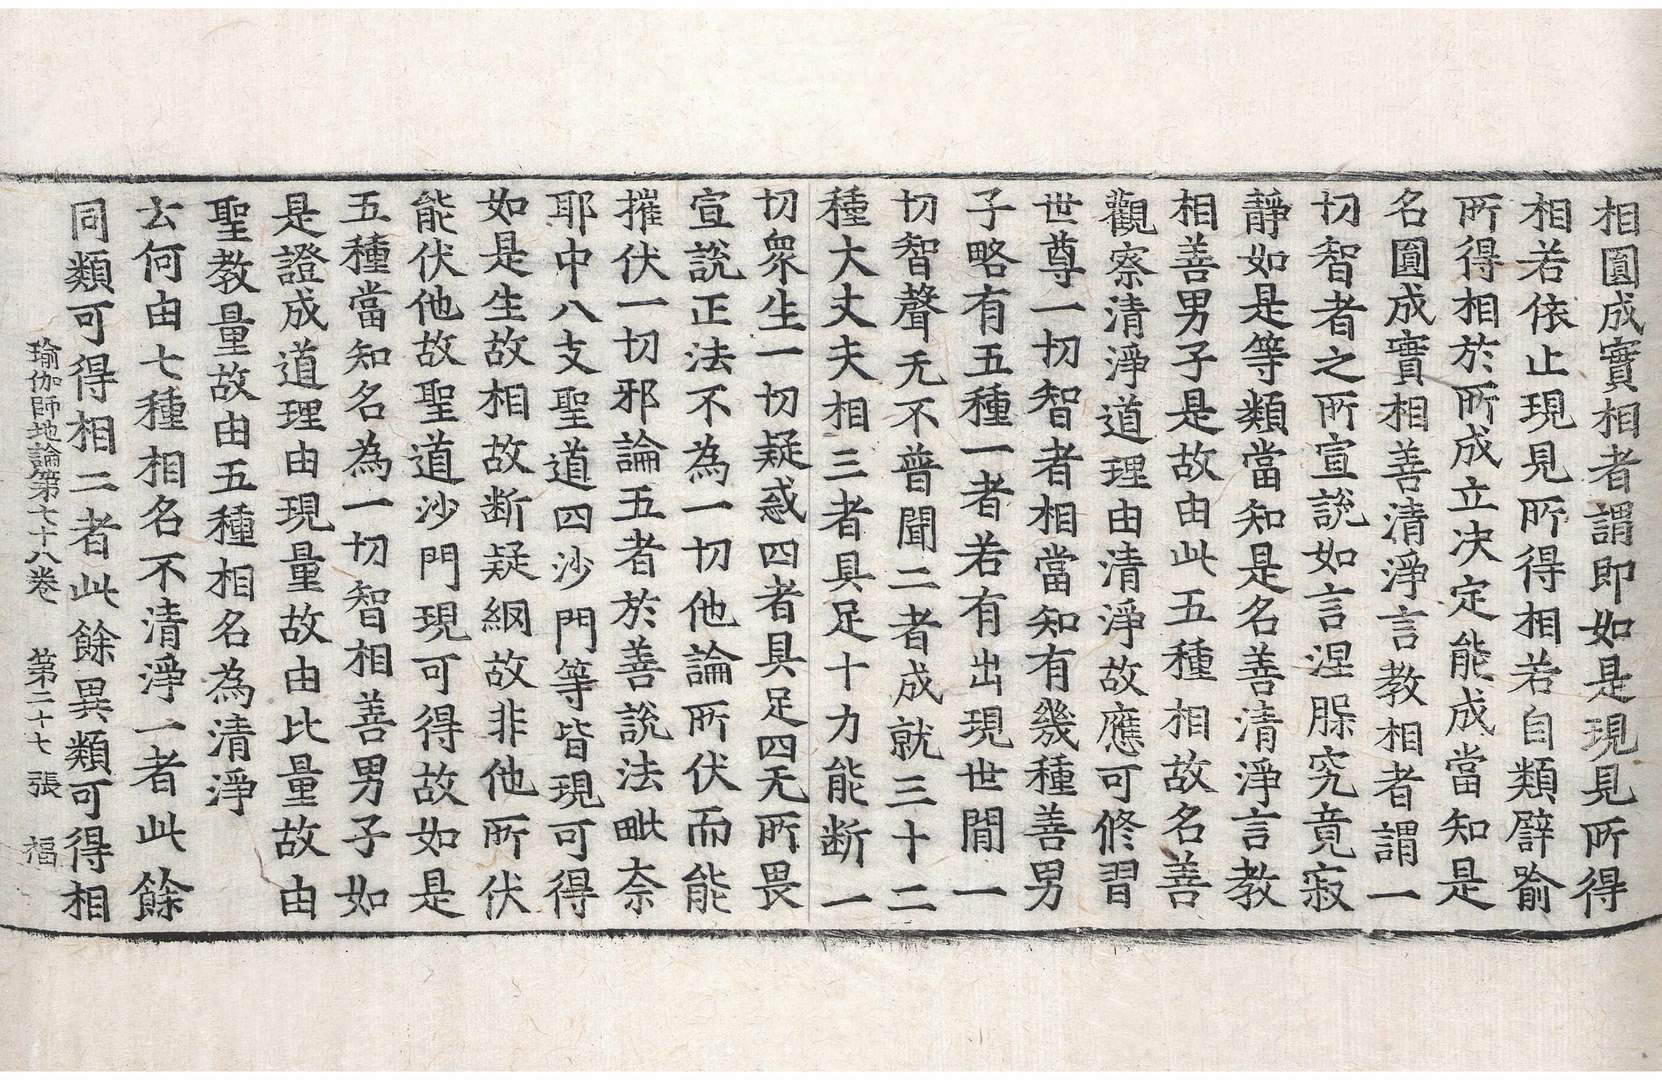 相圓成實相者謂即如是現見所得
相若依止現見所得相若自類譬喻
所得相於所成立決定能成當知是
名圓成實相善清淨言教相者謂一
切智者之所宣說如言涅槃究竟寂
靜如是等類當知是名善清淨言教
相善男子是故由此五種相故名善
觀察清淨道理由清淨故應可修習
世尊一切智者相當知有幾種善男
子略有五種一者若有出現世間一
切智聲无不普聞二者成就三十二
種大丈夫相三者具足十力能断一
切衆生一切疑惑四者具足四无所畏
宣說正法不為一切他論所伏而能
摧伏一切邪論五者於善說法毗奈
耶中八支聖道四沙門等皆現可得
如是生故相故断疑網故非他所伏
能伏他故聖道沙門現可得故如是
五種當知名為一切智相善男子如
是證成道理由現量故由比量故由
聖教量故由五種相名為清淨
云何由七種相名不清淨一者此餘
同類可得相二者此餘異類可得相
瑜伽師地論第七十八卷　第二十七張　福